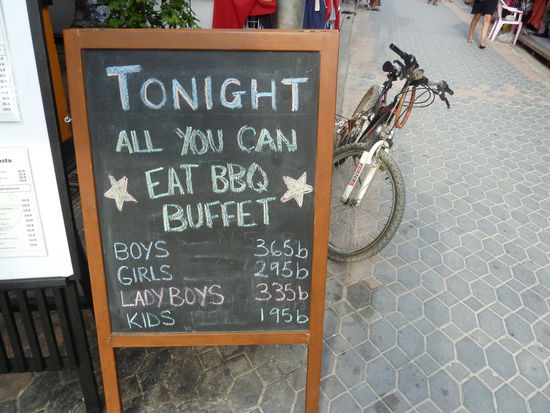 TONIGHT
ALL YOU CAN
EAT BBQ
BUFFET
BOYS 365b
GIRLS 295b
LADYBOYS 335b
KIDS 195b